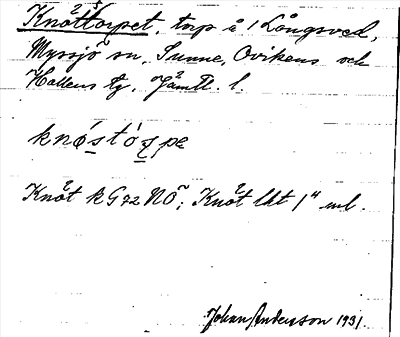 Knöttorpet, tnp å 1 Långsved,
Myssjö sn, Sunne, Ovikens och
Hallens tg, Jämtl. l.
knǿstórpe
Knöt k G 72 NÖ; Knöt lht 1" ml.
Johan Anderson 1931.